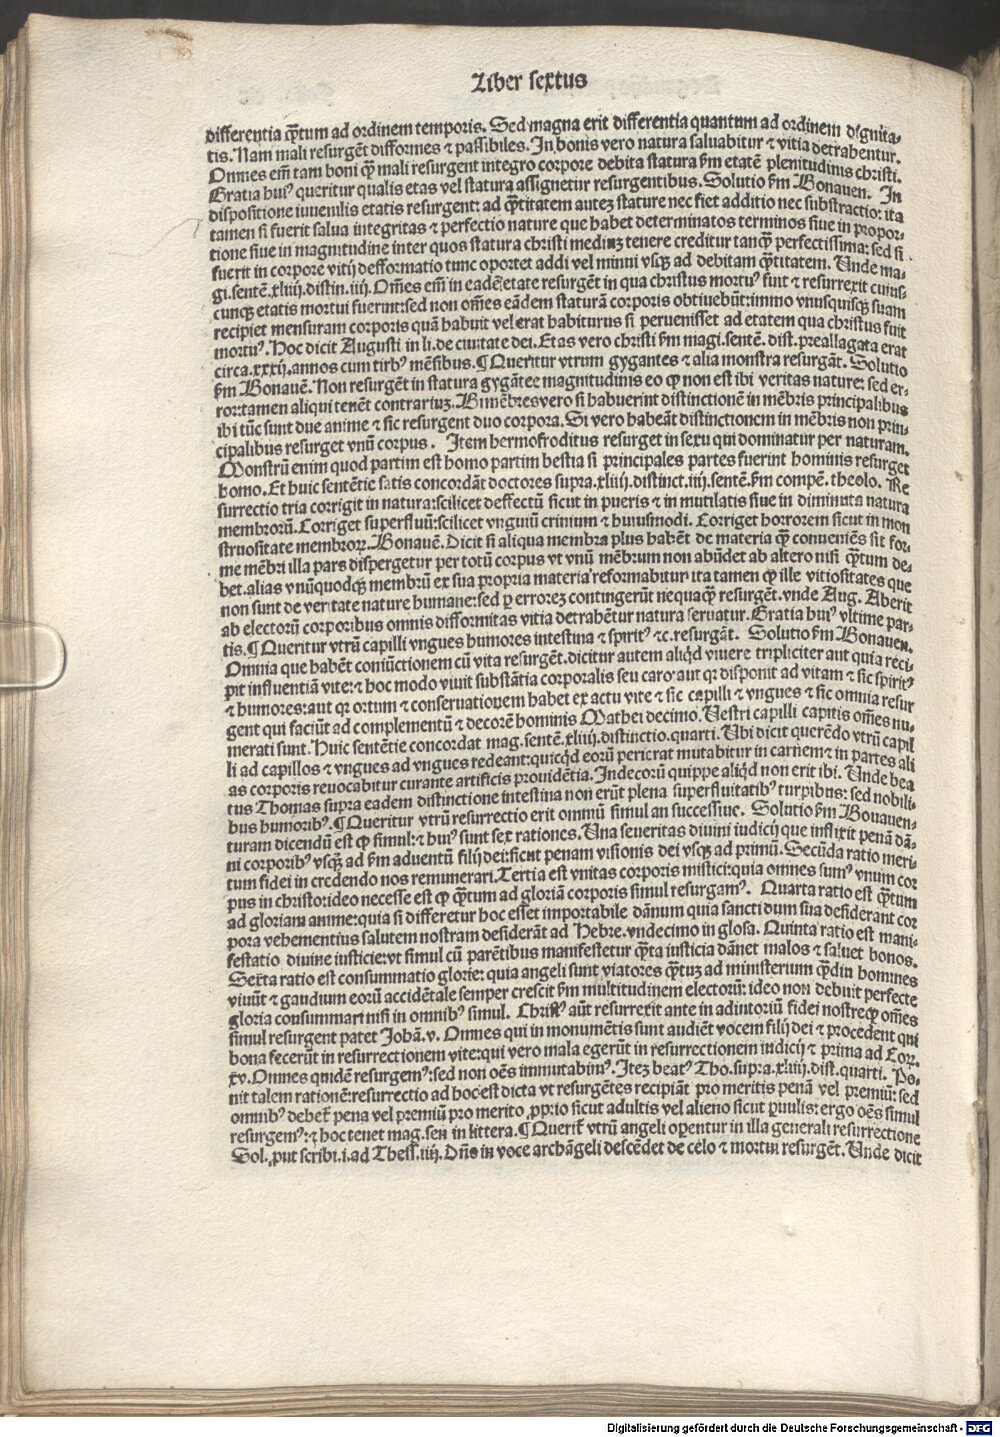 Liber sextus
differentia q̄tum ad ordinem temporis. Sed magna erit differentia quantum ad ordinem dignita-
tis. Nam mali resurgēt difformes ⁊ passibiles. In bonis vero natura saluabitur ⁊ vitia detrahentur.
Omnes em̄ tam boni q̄ȝ mali resurgent integro corpore debita statura ẜm etatē plenitudinis christi.
Gratia huiꝰ queritur qualis etas vel statura assignetur resurgentibus. Solutio ẜm Bonauen. In
dispositione iuuenilis etatis resurgent: ad q̄titatem autez stature nec fiet additio nec substractio: ita
tamen si fuerit salua integritas ⁊ perfectio nature que habet determinatos terminos siue in propor-
tione siue in magnitudine inter quos statura christi mediuz tenere creditur tanq̄ȝ perfectissima: sed si
fuerit in corpore vitij defformatio tunc oportet addi vel minui vsqȝ ad debitam q̄titatem. Unde ma-
gi. sentē. xliiij. distin. iiij. Om̄es em̄ in eadē etate resurgēt in qua christus mortuꝰ fuit ⁊ resurrexit cuius-
cunqȝ etatis mortui fuerint: sed non om̄es eādem staturā corporis obtiuebūt: immo vnusquisqȝ suam
recipiet mensuram corporis quā habuit vel erat habiturus si peruenisset ad etatem qua christus fuit
mortuꝰ. Hoc dicit Augusti in li. de ciuitate dei. Etas vero christi ẜm magi. sentē. dist. preallagata erat
circa. xxxij. annos cum tirbꝰ mēsibus. ¶ Queritur vtrum gygantes ⁊ alia monstra resurgāt. Solutio
ẜm Bonauē. Non resurgēt in statura gygātee magnitudinis eo ꝙ non est ibi veritas nature: sed er-
ror: tamen aliqui tenēt contrariuz. Bimēbres vero si habuerint distinctionē in mēbris principalibus
ibi tūc sunt due anime ⁊ sic resurgent duo corpora. Si vero habeāt distinctionem in mēbris non prin-
cipalibus resurget vnū corpus. Item hermofroditus resurget in sexu qui dominatur per naturam.
Monstrū enim quod partim est homo partim bestia si principales partes fuerint hominis resurget
homo. Et huic sentētie satis concordāt doctores supra. xliiij. distinct. iiij. sentē. ẜm compē. theolo. Re
surrectio tria corrigit in natura: scilicet deffectū sicut in pueris ⁊ in mutilatis siue in diminuta natura
membrorū. Corriget superfluū: scilicet vnguiū crinium ⁊ huiusmodi. Corriget horrorem sicut in mon
struositate membroꝝ. Bonauē. Dicit si aliqua membra plus habēt de materia q̄ȝ conueniēs sit for-
me mēbri illa pars dispergetur per totū corpus vt vnū mēbrum non abūdet ab altero nisi q̄tum de-
bet. alias vnūquodqȝ membrū ex sua propria materia reformabitur ita tamen ꝙ ille vitiositates que
non sunt de veritate nature humane: sed ꝑ errorez contingerūt nequaq̄ȝ resurgēt. vnde Aug. Aberit
ab electorū corporibus omnis difformitas vitia detrahētur natura seruatur. Gratia huiꝰ vltime par-
tis. ¶ Queritur vtrū capilli vngues humores intestina ⁊ spiritꝰ ⁊c. resurgāt. Solutio ẜm Bonauen.
Omnia que habēt coniūctionem cū vita resurgēt. dicitur autem aliq̇d viuere tripliciter aut quia reci-
pit influentiā vite: ⁊ hoc modo viuit substātia corporalis seu caro: aut qꝛ disponit ad vitam ⁊ sic spiritꝰ
⁊ humores: aut qꝛ ortum ⁊ conseruationem habet ex actu vite ⁊ sic capilli ⁊ vngues ⁊ sic omnia resur
gent qui faciūt ad complementū ⁊ decorē hominis Mathei decimo. Vestri capilli capitis om̄es nu-
merati sunt. Huic sentētie concordat mag. sentē. xliiij. distinctio. quarti. Ubi dicit querēdo vtrū capil
li ad capillos ⁊ vngues ad vngues redeant: quicq̇d eorū perierat mutabitur in carnem ⁊ in partes ali
as corporis reuocabitur curante artificis prouidētia. Indecorū quippe aliq̇d non erit ibi. Unde bea
tus Thomas supra eadem distinctione intestina non erūt plena superfluitatibꝰ turpibus: sed nobili-
bus humoribꝰ. ¶ Queritur vtrū resurrectio erit omniū simul an successiue. Solutio ẜm Bouauen-
turam dicendū est ꝙ simul: ⁊ huiꝰ sunt sex rationes. Una seueritas diuini iudicij que inflixit penā dā-
ni corporibꝰ vsqȝ ad ẜm aduentū filij dei: sicut penam visionis dei vsqȝ ad primū. Secūda ratio meri-
tum fidei in credendo nos remunerari. Tertia est vnitas corporis mistici: quia omnes sumꝰ vnum cor
pus in christo: ideo necesse est ꝙ q̄tum ad gloriā corporis simul resurgamꝰ. Quarta ratio est q̄tum
ad gloriam anime: quia si differetur hoc esset importabile dānum quia sancti dum sua desiderant cor
pora vehementius salutem nostram desiderāt ad Hebre. vndecimo in glosa. Quinta ratio est mani-
festatio diuine iusticie: vt simul cū parētibus manifestetur q̄ta iusticia dānet malos ⁊ saluet bonos.
Sexta ratio est consummatio glorie: quia angeli sunt viatores q̄tuȝ ad ministerium q̄diu homines
viuūt ⁊ gaudium eorū accidētale semper crescit ẜm multitudinem electorū: ideo non debuit perfecte
gloria consummari nisi in omnibꝰ simul. Christꝰ aūt resurrexit ante in adiutoriū fidei nostreqȝ om̄es
simul resurgent patet Johā. v. Omnes qui in monumētis sunt audiēt vocem filij dei ⁊ procedent qui
bona fecerūt in resurrectionem vite: qui vero mala egerūt in resurrectionem iudicij ⁊ prima ad Coꝝ.
xv. Omnes quidē resurgemꝰ: sed non oēs immutabimꝰ. Itez beatꝰ Tho. supra. xliiij. dist. quarti. Po-
nit talem rationē: resurrectio ad hoc est dicta vt resurgētes recipiāt pro meritis penā vel premiū: sed
omnibꝰ debet̄ pena vel premiū pro merito ꝓprio sicut adultis vel alieno sicut paruulis: ergo oēs simul
resurgemꝰ: ⁊ hoc tenet mag. sen in littera. ¶ Querit̄ vtrū angeli operentur in illa generali resurrectione
Sol. ꝓut scribi. i. ad Thess. iiij. Dn̄s in voce archāgeli descēdet de celo ⁊ mortui resurgēt. Unde dicit
Digitalisierung gefördert durch die Deutsche Forschungsgemeinschaft - DFG